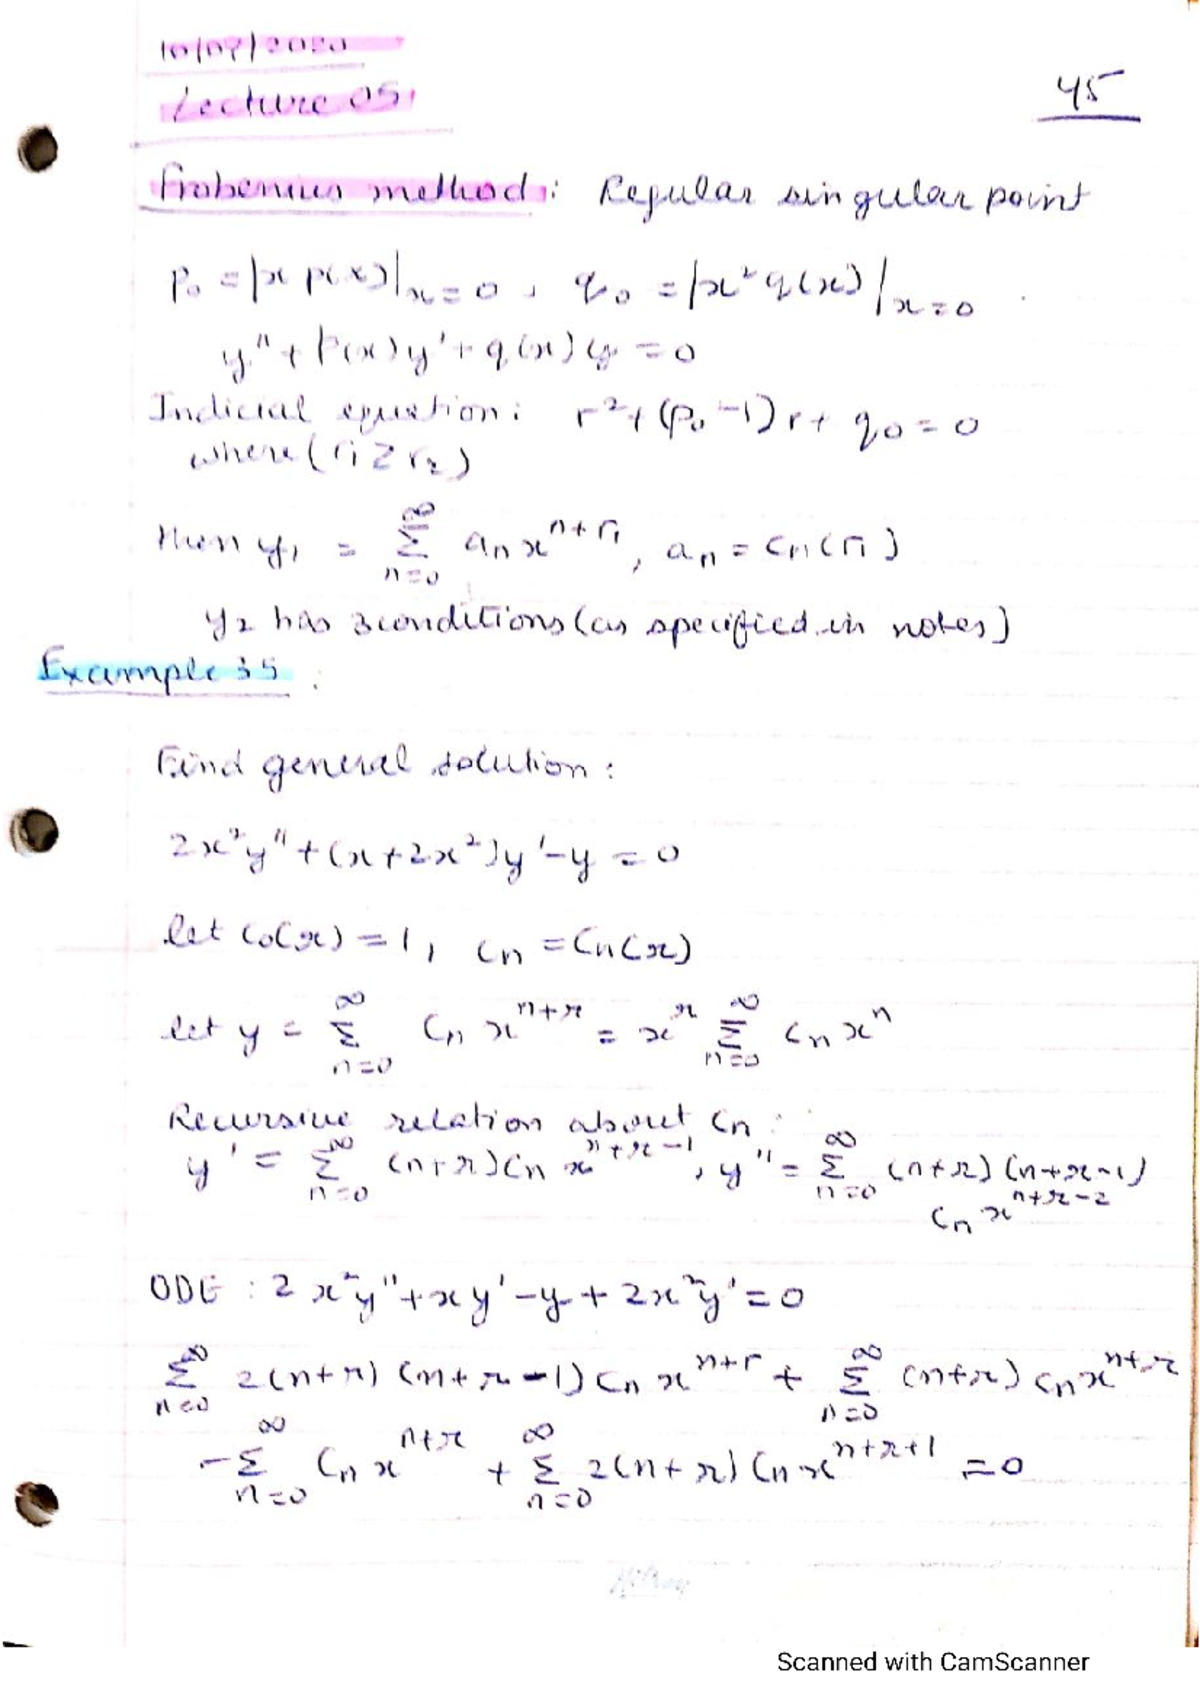 10/07/2020
Lecture 05
45
Frobenius method: Regular singular point
p₀ = |x p(x)|ₓ₌₀, q₀ = |x² q(x)|ₓ₌₀
y'' + P(x)y' + q(x)y = 0
Indicial equation: r² + (p₀ - 1)r + q₀ = 0
where (r₁ ≥ r₂)
then y₁ = ∑ₙ₌₀^∞ aₙ x^(n+r₁), aₙ = cₙ(r₁)
y₂ has 3 conditions (as specified in notes)
Example 35:
Find general solution:
2x²y'' + (x + 2x²)y' - y = 0
let c₀(r) = 1, cₙ = cₙ(r)
let y = ∑ₙ₌₀^∞ cₙ x^(n+r) = x^r ∑ₙ₌₀^∞ cₙ xⁿ
Recursive relation about cₙ:
y' = ∑ₙ₌₀^∞ (n+r)cₙ x^(n+r-1), y'' = ∑ₙ₌₀^∞ (n+r)(n+r-1)
cₙ x^(n+r-2)
ODE : 2x²y'' + xy' - y + 2x²y' = 0
∑ₙ₌₀^∞ 2(n+r)(n+r-1)cₙ x^(n+r) + ∑ₙ₌₀^∞ (n+r)cₙ x^(n+r)
-∑ₙ₌₀^∞ cₙ x^(n+r) + ∑ₙ₌₀^∞ 2(n+r)cₙ x^(n+r+1) = 0
Scanned with CamScanner